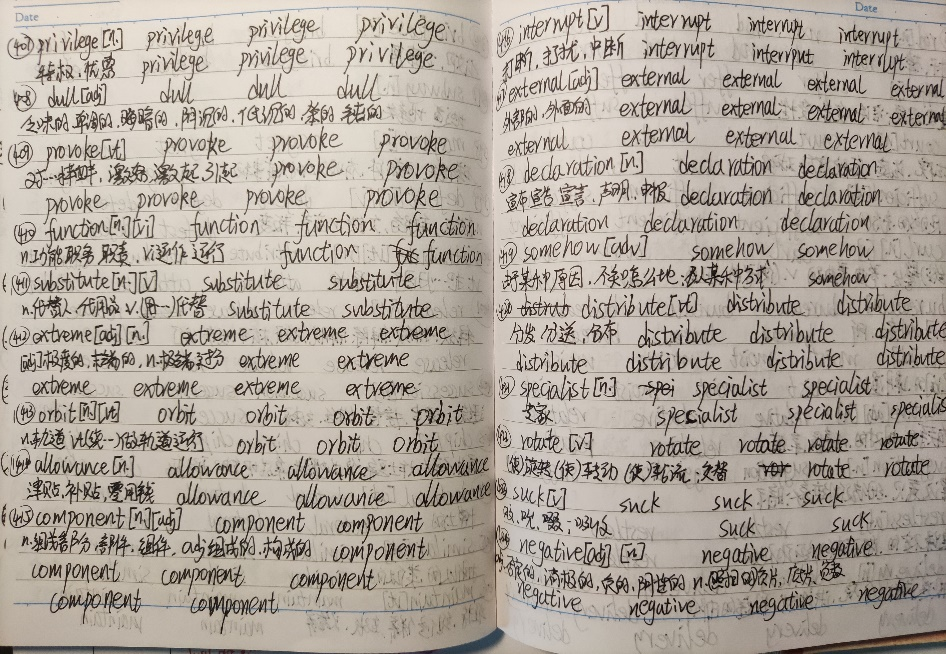 Date
(407) privilege [n] privilege privilege privilege
特权,优惠 privilege privilege privilege
408 dull [adj] dull dull dull
单调的,阴沉的,低沉的,笨的
(409) provoke [vt] provoke provoke provoke
对…挑衅,激怒,激起,引起 provoke provoke
provoke provoke provoke provoke
(410) function [n] [vi] function function function
n.功能 职务 职责, vi运作 运行 function function
(411) substitute [n] [v] substitute substitute
n.代替人,代用品 v.(用一)代替 substitute substitute
(412) extreme [adj] [n] extreme extreme extreme
adj极度的, n. extreme extreme
extreme extreme extreme extreme
(413) orbit [n] [vt] orbit orbit orbit orbit
n.轨道 vt(绕一)做轨道运行 orbit orbit orbit
allowance [n] allowance allowance allowance
津贴,补贴,零用钱 allowance allowance allowance
(415) component [n] [adj] component component
n.组成部分,部件,组件, adj组成的,构成的 component
component component component
component component
Date
interrupt [v] interrupt interrupt interrupt
打断,打扰,中断 interrupt interrput interrupt
external [adj] external external external external
外部的,外面的 external external external external
external external external external
declaration [n] declaration declaration
宣布 宣告 宣言,声明,申报 declaration declaration
declaration declaration declaration
somehow [adv] somehow somehow
由于某种原因,不知怎么地;以某种方式 somehow
distribute [vt] distribute distribute
分发 分送,分布 distribute distribute distribute
distribute distribute distribute distribute
specialist [n] specialist specialist
专家 specialist specialist specialis
rotate [v] rotate rotate rotate rotate
(使)旋转(使)转动 (使)轮流;交替 rotate rotate
suck [v] suck suck suck
吮,吸 suck suck
negative [adj] [n] negative negative
消极的,负的,阴性的 n. 底片,负数
negative negative negative negative